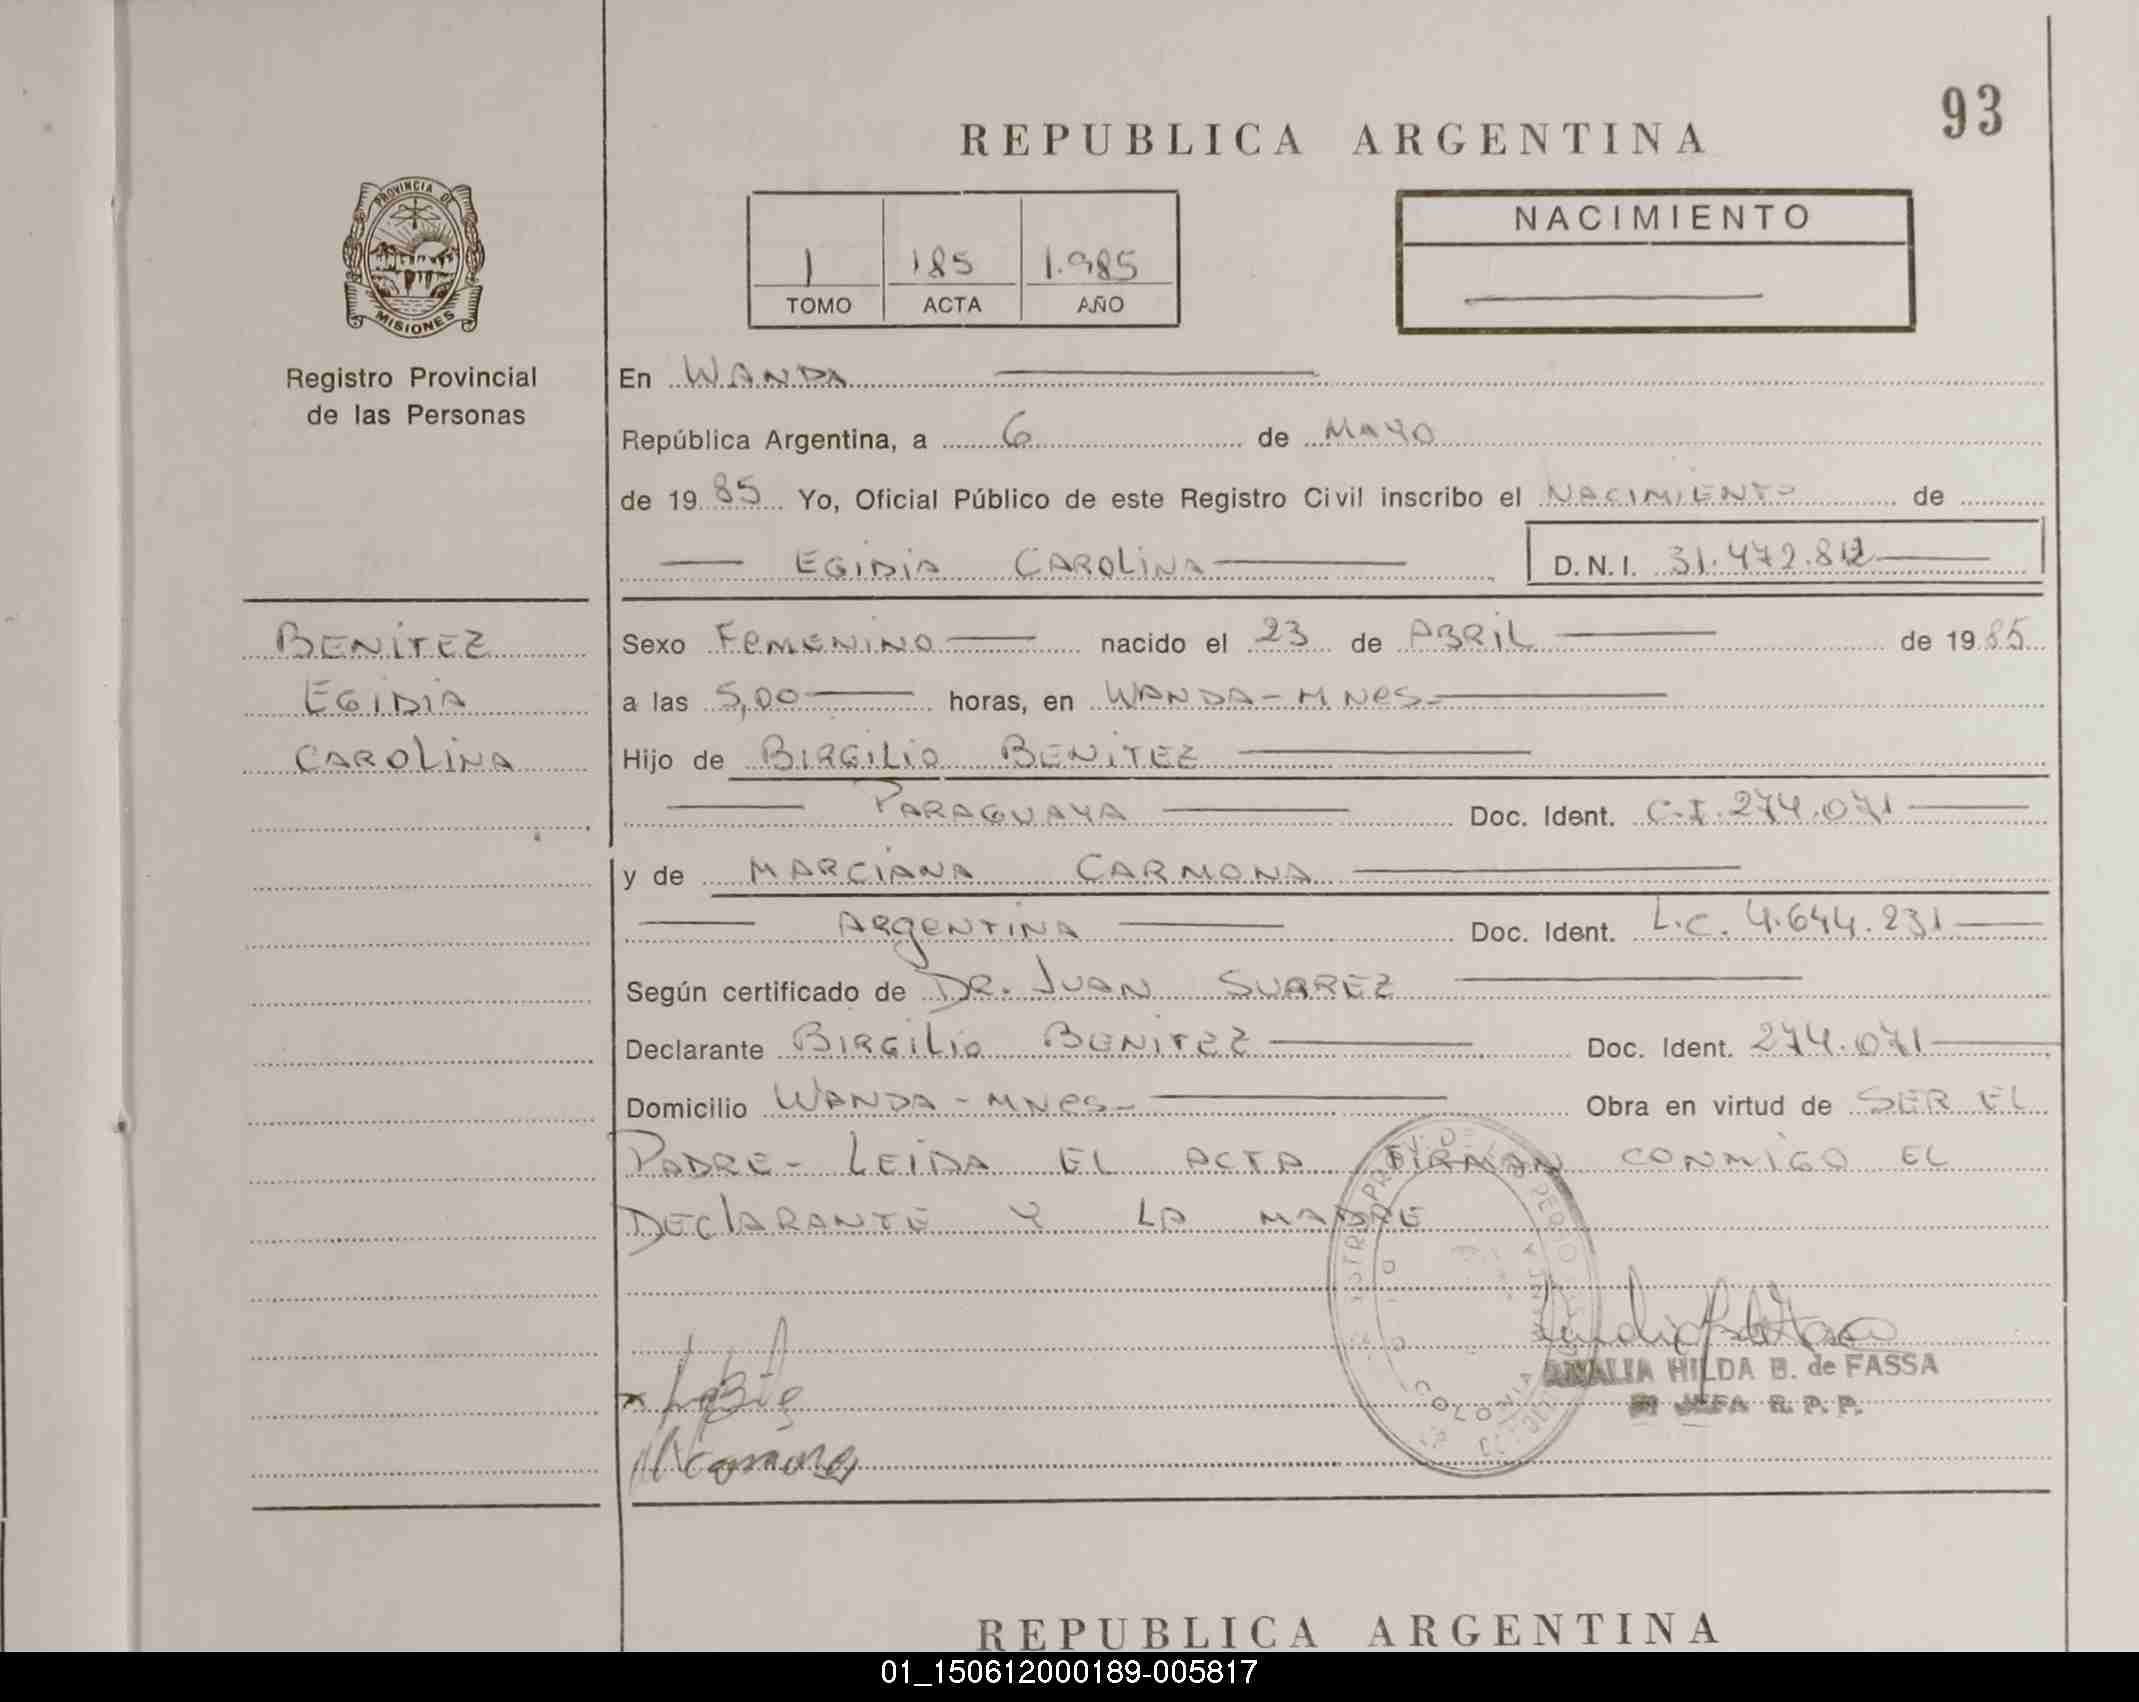 93
REPUBLICA ARGENTINA
PROVINCIA DE
MISIONES
Registro Provincial
de las Personas
1 185 1.985
TOMO ACTA AÑO
NACIMIENTO
En WANDA
República Argentina, a 6 de MAYO
de 19 85 Yo, Oficial Público de este Registro Civil inscribo el NACIMIENTO de
EGIDIA CAROLINA D.N.I. 31.472.812
BENITEZ
EGIDIA
CAROLINA
Sexo FEMENINO nacido el 23 de ABRIL de 19 85
a las 5,00 horas, en WANDA - MNES-
Hijo de BIRGILIO BENITEZ
PARAGUAYA Doc. Ident. C.I. 274.071
y de MARCIANA CARMONA
ARGENTINA Doc. Ident. L.C. 4.644.231
Según certificado de DR. JUAN SUAREZ
Declarante BIRGILIO BENITEZ Doc. Ident. 274.071
Domicilio WANDA - MNES- Obra en virtud de SER EL
PADRE - LEIDA EL ACTA FIRMAN CONMIGO EL
DECLARANTE Y LA MADRE
HILDA B. de FASSA
JEFA R. P. P.
REPUBLICA ARGENTINA
01_150612000189-005817